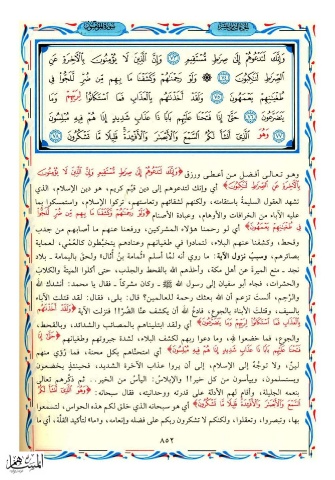 وَإِنَّكَ لَتَدْعُوهُمْ إِلَىٰ صِرَٰطٍ مُّسْتَقِيمٍ ﴿٧٣﴾ وَإِنَّ ٱلَّذِينَ لَا يُؤْمِنُونَ بِٱلْـَٔاخِرَةِ عَنِ
ٱلصِّرَٰطِ لَنَٰكِبُونَ ﴿٧٤﴾ وَلَوْ رَحِمْنَٰهُمْ وَكَشَفْنَا مَا بِهِم مِّن ضُرٍّ لَّلَجُّوا۟ فِى
طُغْيَٰنِهِمْ يَعْمَهُونَ ﴿٧٥﴾ وَلَقَدْ أَخَذْنَٰهُم بِٱلْعَذَابِ فَمَا ٱسْتَكَانُوا۟ لِرَبِّهِمْ وَمَا
يَتَضَرَّعُونَ ﴿٧٦﴾ حَتَّىٰٓ إِذَا فَتَحْنَا عَلَيْهِم بَابًا ذَا عَذَابٍ شَدِيدٍ إِذَا هُمْ فِيهِ مُبْلِسُونَ
﴿٧٧﴾ وَهُوَ ٱلَّذِىٓ أَنشَأَ لَكُمُ ٱلسَّمْعَ وَٱلْأَبْصَٰرَ وَٱلْأَفْـِٔدَةَ قَلِيلًا مَّا تَشْكُرُونَ ﴿٧٨﴾
وهو تعالى أفضل من أعطى ورزق ﴿وَإِنَّكَ لَتَدْعُوهُمْ إِلَىٰ صِرَٰطٍ مُّسْتَقِيمٍ وَإِنَّ ٱلَّذِينَ لَا يُؤْمِنُونَ
بِٱلْـَٔاخِرَةِ عَنِ ٱلصِّرَٰطِ لَنَٰكِبُونَ﴾ أي وإنك لتدعوهم إلى دين قيّم كريم، هو دين الإسلام، الذي
تشهد العقول السليمة باستقامته، ولكنهم لشقائهم وتعاستهم، تركوا الإسلام، واستمسكوا بما
عليه الآباء من الخرافات والأوهام، وعبادة الأصنام ﴿وَلَوْ رَحِمْنَٰهُمْ وَكَشَفْنَا مَا بِهِم مِّن ضُرٍّ لَّلَجُّوا۟
فِى طُغْيَٰنِهِمْ يَعْمَهُونَ﴾ أي لو رحمنا هؤلاء المشركين، ورفعنا عنهم ما أصابهم من جدب
وقحط، وكشفنا عنهم البلاء، لتمادوا في طغيانهم وعنادهم يتخبطون كالعُمْي، لعماية
بصائرهم، وسبب نزول الآية: ما روي أنه لمَّا أسلم «ثُمامة بنُ أُثال» ولحق باليمامة ـ بلاد
نجد ـ منع الميرة عن أهل مكة، وأخذهم الله بالقحط والجدب، حتى أكلوا الميتةَ والكلابَ
والحشرات، فجاء أبو سفيان إلى رسول الله ﷺ ـ وكان مشركاً ـ فقال يا محمد: أنشدُك الله
والرَّحِم، ألستَ تزعم أن الله بعثك رحمة للعالمين؟ قال: بلى، فقال: لقد قتلتَ الآباء
بالسيف، وقتلتَ الأبناء بالجوع، فادعُ الله أن يكشف عنَّا الضُّر!! فنزلت الآية ﴿وَلَقَدْ أَخَذْنَٰهُم
بِٱلْعَذَابِ فَمَا ٱسْتَكَانُوا۟ لِرَبِّهِمْ وَمَا يَتَضَرَّعُونَ﴾ أي ولقد ابتليناهم بالمصائب والشدائد، وبالقحط،
والجوع، فما خضعوا لله، وما دعوا ربهم لكشف البلاء، لشدة جبروتهم وطغيانهم ﴿حَتَّىٰٓ إِذَا
فَتَحْنَا عَلَيْهِم بَابًا ذَا عَذَابٍ شَدِيدٍ إِذَا هُمْ فِيهِ مُبْلِسُونَ﴾ أي امتحنَّاهم بكل محنة، فما رُؤي منهم
لينٌ، ولا توجُّهٌ إلى الإسلام، إلى أن يروا عذاب الآخرة الشديد، فحينئذٍ يخضعون
ويستسلمون، وييأسون من كل خير!! والإبلاسُ: اليأسُ من الخير.. ثم ذكَّرهم تعالى
بنعمه الجليلة، وأقام لهم الأدلة على قدرته ووحدانيته، فقال سبحانه: ﴿وَهُوَ ٱلَّذِىٓ أَنشَأَ لَكُمُ
ٱلسَّمْعَ وَٱلْأَبْصَٰرَ وَٱلْأَفْـِٔدَةَ قَلِيلًا مَّا تَشْكُرُونَ﴾ أي هو سبحانه الذي خلق لكم هذه الحواس، لتسمعوا
بها، وتبصروا، وتعقلوا، ولكنكم لا تشكرون ربكم على فضله وإنعامه، و«ما» لتأكيد القلَّة، أي ما
٨٥٢